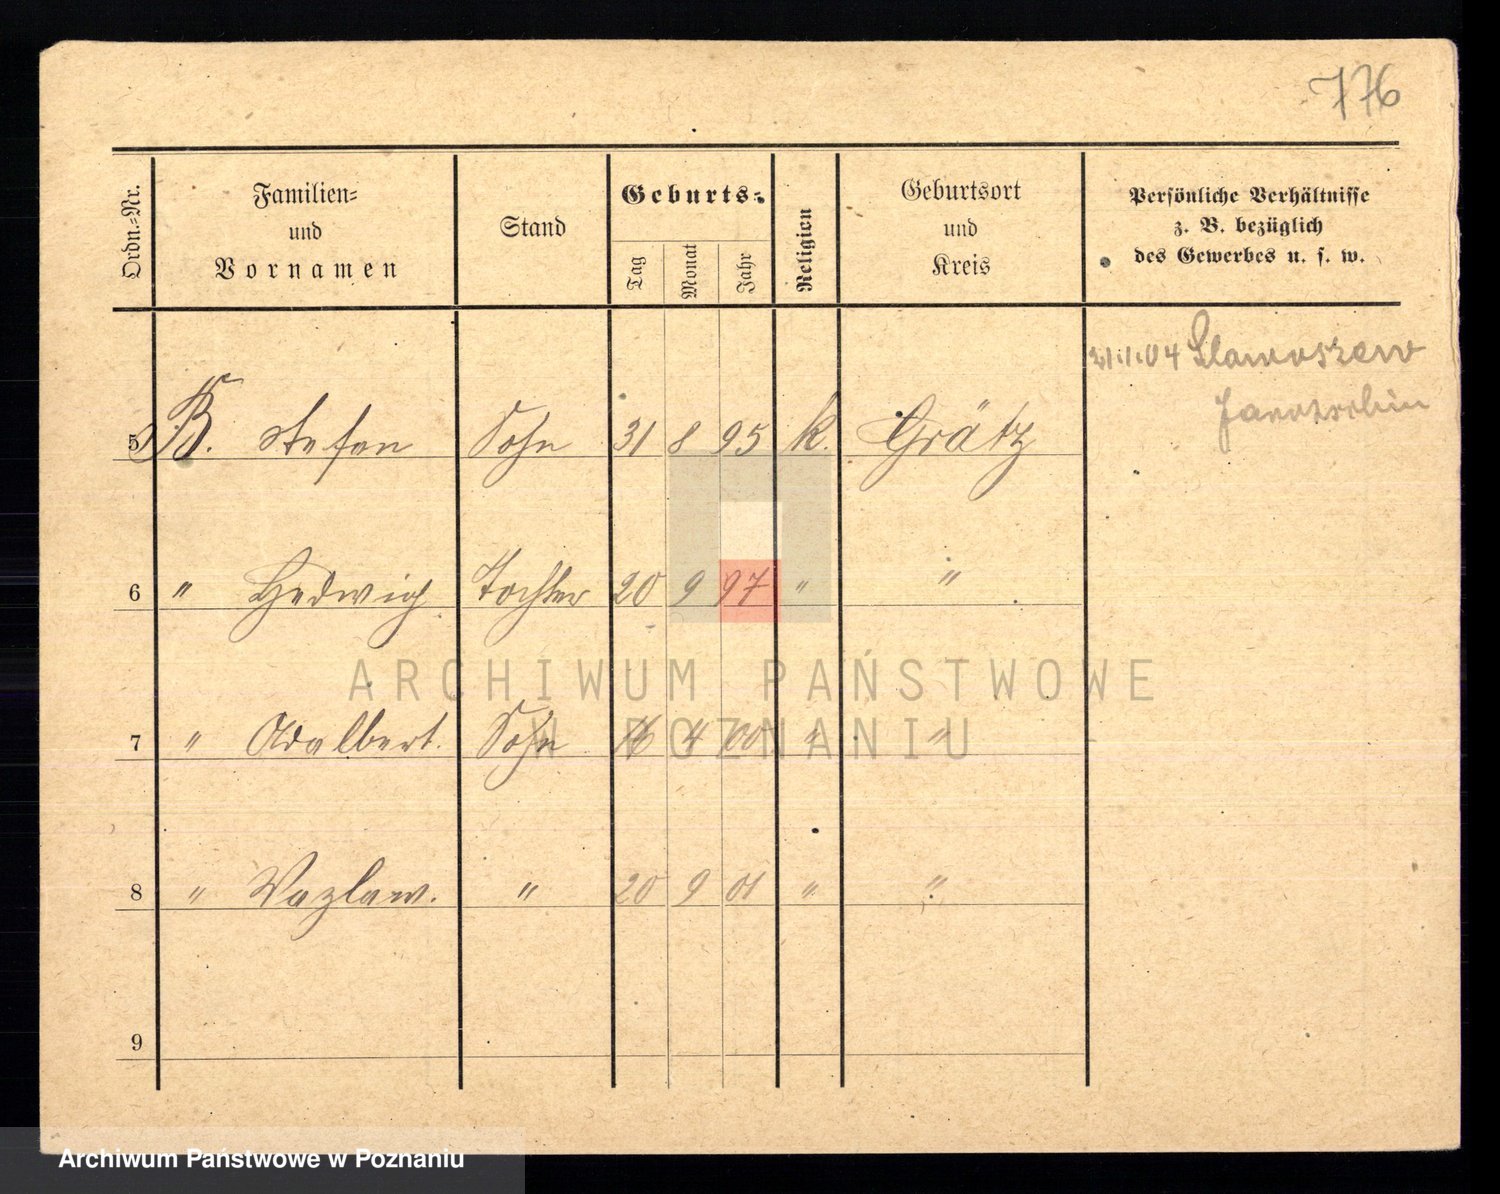 776
Ordn.-Nr.
Familien-
und
Vornamen
Stand
Geburts-
Tag
Monat
Jahr
Religion
Geburtsort
und
Kreis
Persönliche Verhältnisse
z. B. bezüglich
des Gewerbes u. s. w.
04
5 B. Stefan Sohn 31 8 95 k. Grätz
6 " Hedwig Tochter 20 9 97 " "
7 " Adalbert. Sohn 16 4 00 " "
8 " Vazlaw. " 20 9 01 " "
9
ARCHIWUM PAŃSTWOWE
W POZNANIU
Archiwum Państwowe w Poznaniu